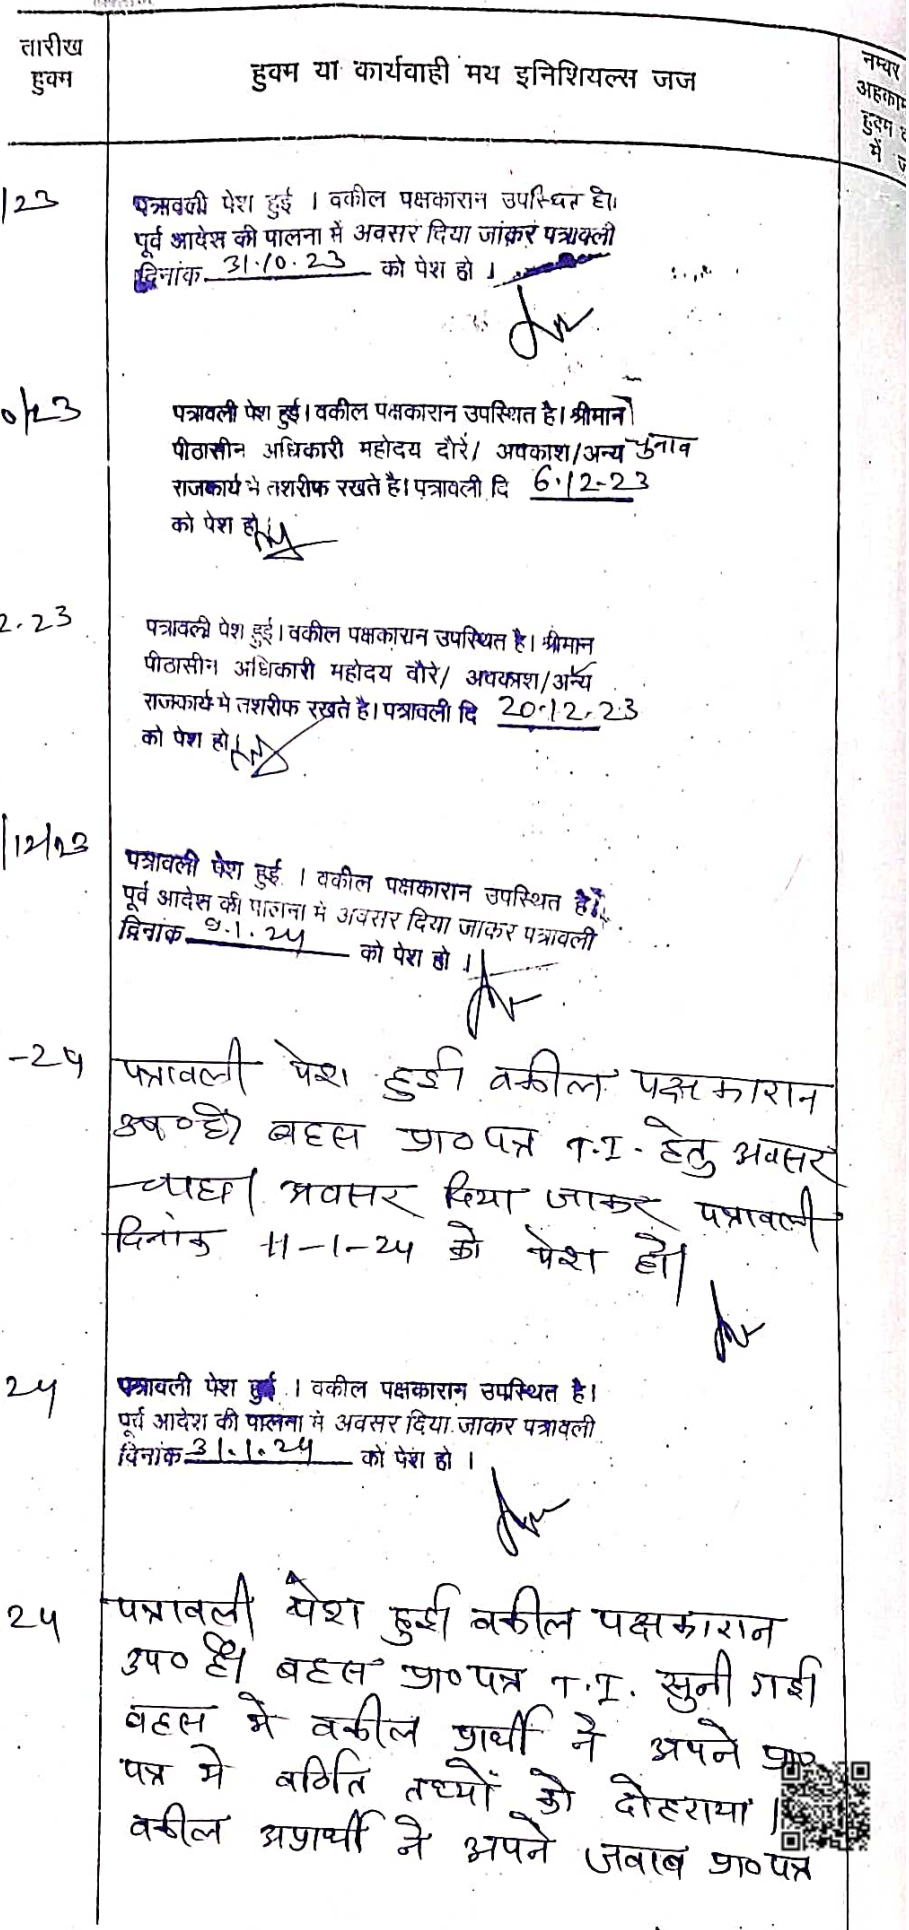 तारीख
हुक्म
हुक्म या कार्यवाही मय इनिशियल्स जज
नम्बर
अहकाम
हुक्म
में
/23
पत्रावली पेश हुई । वकील पक्षकारान उपस्थित है।
पूर्व आदेश की पालना में अवसर दिया जाकर पत्रावली
दिनांक 31.10.23 को पेश हो ।
0/23
पत्रावली पेश हुई। वकील पक्षकारान उपस्थित है। श्रीमान
पीठासीन अधिकारी महोदय दौरे/ अवकाश/अन्य चुनाव
राजकार्य मे तशरीफ रखते है। पत्रावली दि 6.12-23
को पेश हो।
2.23
पत्रावली पेश हुई। वकील पक्षकारान उपस्थित है। श्रीमान
पीठासीन अधिकारी महोदय दौरे/ अवकाश/अन्य
राजकार्य मे तशरीफ रखते है। पत्रावली दि 20.12.23
को पेश हो।
/12/23
पत्रावली पेश हुई । वकील पक्षकारान उपस्थित है।
पूर्व आदेश की पालना में अवसर दिया जाकर पत्रावली
दिनांक 9.1.24 को पेश हो ।
-24
पत्रावली पेश हुई। वकील पक्षकारान
उप० है। बहस प्रा० पत्र T.I. हेतु अवसर
चाहा। अवसर दिया जाकर पत्रावली
दिनांक 11-1-24 को पेश हो।
24
पत्रावली पेश हुई । वकील पक्षकारान उपस्थित है।
पूर्व आदेश की पालना में अवसर दिया जाकर पत्रावली
दिनांक 31.1.24 को पेश हो ।
24
पत्रावली पेश हुई। वकील पक्षकारान
उप० है। बहस प्रा० पत्र T.I. सुनी गई।
बहस मे वकील प्रार्थी ने अपने प्रा०
पत्र मे वर्णित तथ्यों को दोहराया।
वकील अप्रार्थी ने अपने जवाब प्रा० पत्र